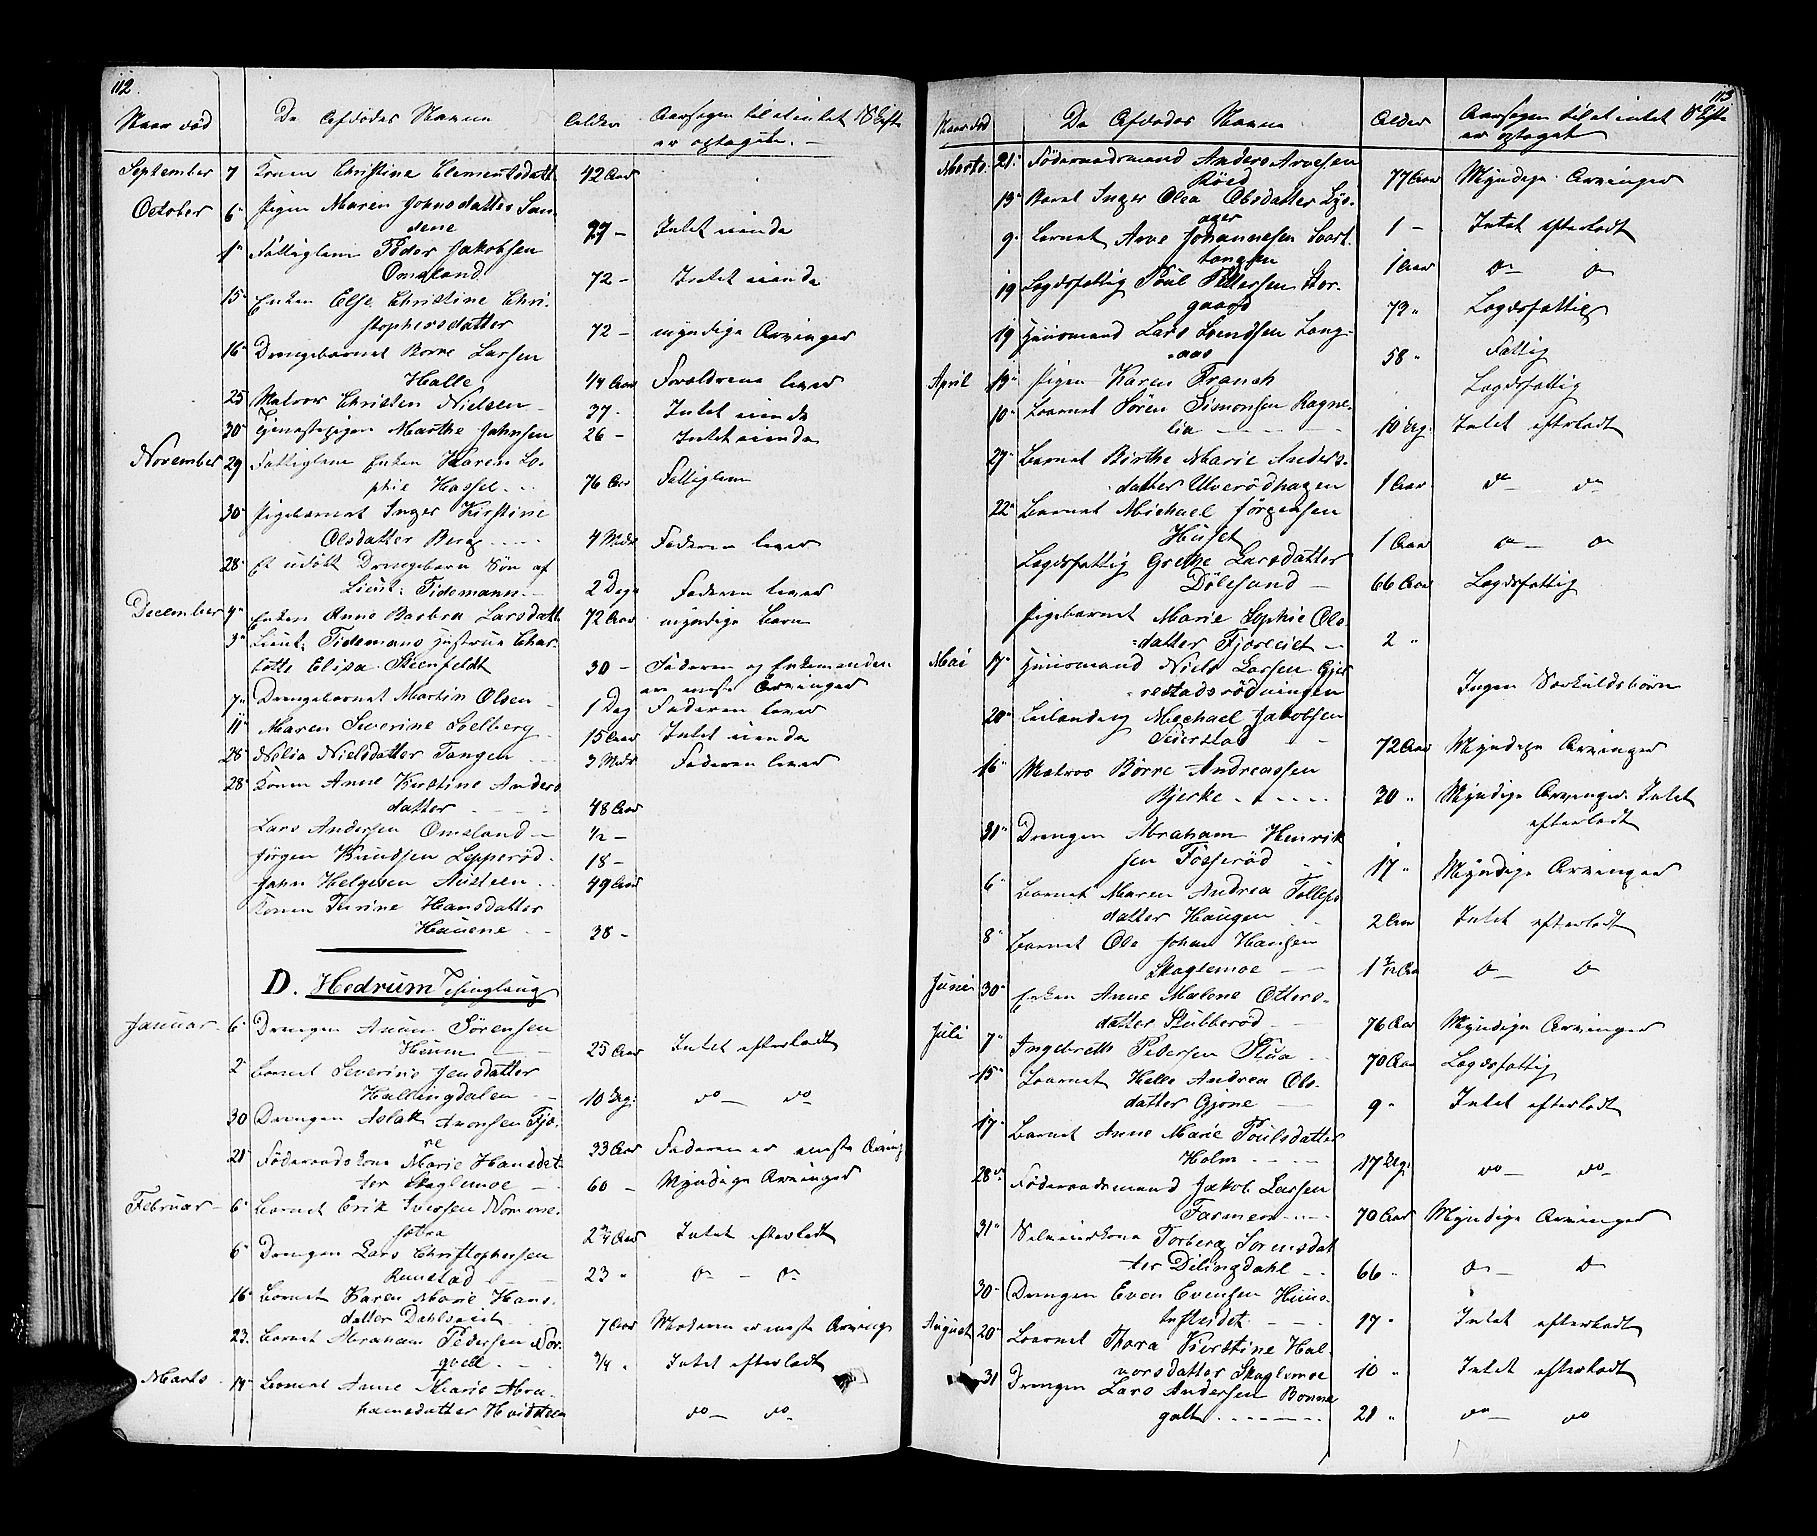 112.
Naar død De Afdødes Navne Alder Aarsagen til at intet Skifte
er optaget. -
September 7 Konen Christine Clementsdatt. 42 Aar
October 6 Pigen Maren Johnsdatter San-
dene 27 - Intet eiende
1 Fattiglem Peder Jakobsen
Omsland 72 - Intet eiende
15 Enken Else Christine Chri-
stophersdatter 72 - myndige Arvinger
16 Drengebarnet Borre Larsen
Halle 1/4 Aar Forældrene lever
25 Matros Christen Nielsen 37 - Intet eiende
30 Tjenestepigen Marthe Johnsen 26 - Intet eiende
November 29 Fattiglem Enken Karen So-
phie Hassel 76 Aar Fattiglem
30 Pigebarnet Inger Kirstine
Olsdatter Berg 4 Mdr Faderen lever
28 Et udøbt Drengebarn Søn af
Lieut: Tidemann 2 Dage Faderen lever
December 4 Enken Anne Barbra Larsdatt. 72 Aar myndige Børn
3 Lieut: Tidemans Hustrue Char-
lotte Elisa Steenfeldt 30 - Faderen og Enkemanden
er eneste Arvinger
7 Drengebarnet Martin Olsen 1 Dag Faderen lever
11 Maren Severine Solberg 15 Aar Intet eiende
28 Nelia Nielsdatter Tangen 3 Mdr Faderen lever
28 Konen Anne Kirstine Anders-
datter 48 Aar
Lars Andersen Omsland 1/2 -
Jørgen Knudsen Lepperød 18 -
John Helgesen Austeen 49 Aar
Konen Turine Hansdatter
Hauene 38 -
D. Hedrum Thinglaug
Januar 6 Drengen Anun Sörensen
Heum 25 Aar Intet efterladt
2 Barnet Severine Jensdatter
Hallingdalen 10 Dg: do - do
30 Drengen Aslak Aronsen Fjø-
re 33 Aar Faderen er eneste Arving
21 Föderaadskone Marie Hansdat-
ter Skaglemoe 60 - Myndige Arvinger
Februar 6 Barnet Erik Iversen Nomme-
sætra 2 3/4 Aar Intet efterladt
6 Drengen Lars Christophersen
Rimstad 23 " do - do
16 Barnet Karen Marie Hans-
datter Dahlseiet 7 Aar Moderen er eneste Arving
23 Barnet Abraham Pedersen Nor-
gvelle 3/4 " Intet efterladt
Marts 14 Barnet Anne Marie Abra-
hamsdatter Hvidsteen do - do
113
Naar død De Afdødes Navne Alder Aarsagen til at intet Skifte
er optaget
Marts 21 Föderaadsmand Anders Arvesen
Röed 77 Aar Myndige Arvinger
13 Barnet Inger Olea Olsdatter Lys-
ager 1 - Intet efterladt
9 Barnet Arve Johannesen Svart-
tangen 1 Aar do do
19 Lægdsfattig Poul Pettersen Stor-
gaard 73 " Lægdsfattig
19 Huusmand Lars Svendsen Lang-
aas 58 " Fattig
April 13 Pigen Karen Franck Lægdsfattig
10 Barnet Sören Simonsen Ragne-
lia 10 Dg. Intet efterladt
27 Barnet Birthe Marie Anders-
datter Ulverödhagen 1 Aar do do
22 Barnet Michael Jörgensen
Huset 1 Aar do - do
Lægdsfattig Grethe Larsdatter
Dölesand 66 Aar Lægdsfattig
Pigebarnet Marie Sophie Ols-
datter Fjøreeiet 2 "
Mai 17 Huusmand Niels Larsen Gjer-
restadsrödningen Ingen Særkuldsbörn
20 Leilænding Michael Jakobsen
Suerstad 72 Aar Myndige Arvinger
16 Matros Börre Andreassen
Bjerke 30 " Myndige Arvinger. Intet
efterladt
31 Drengen Abraham Henrik-
sen Fosserød 17 " Myndige Arvinger
6 Barnet Maren Andrea Tollefs-
datter Haugen 2 Aar Intet efterladt
8 Barnet Ole Johan Hansen
Skaglemoe 1 7/12 Aar do do
Juni 30 Enken Anne Malene Otters-
datter Stubberød 76 Aar Myndige Arvinger
Juli 7 Ingebreth Pedersen Stua 70 Aar Lægdsfattig
15 Barnet Helle Andrea Ols-
datter Gjone 9 " Intet efterladt
17 Barnet Anne Marie Poulsdatter
Holm 17 Dg: do - do
28 Föderaadsmand Jakob Larsen
Farmen 70 Aar Myndige Arvinger
31 Selveierkone Torberg Sorensdat-
ter Dilingdahl 66 " do - do
30 Drengen Even Evensen Huus-
tufteidet 17 " Intet efterladt
August 20 Barnet Thora Kirstine Hal-
vorsdatter Skaglemoe 10 " Intet efterladt
31 Drengen Lars Andersen Bonne-
galt 21 " do do